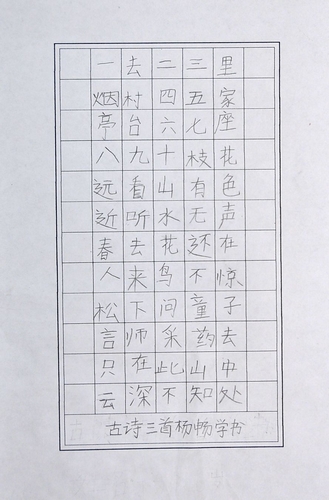 一去二三里
烟村四五家
亭台六七座
八九十枝花
远看山有色
近听水无声
春去花还在
人来鸟不惊
松下问童子
言师采药去
只在此山中
云深不知处
古诗三首杨畅学书